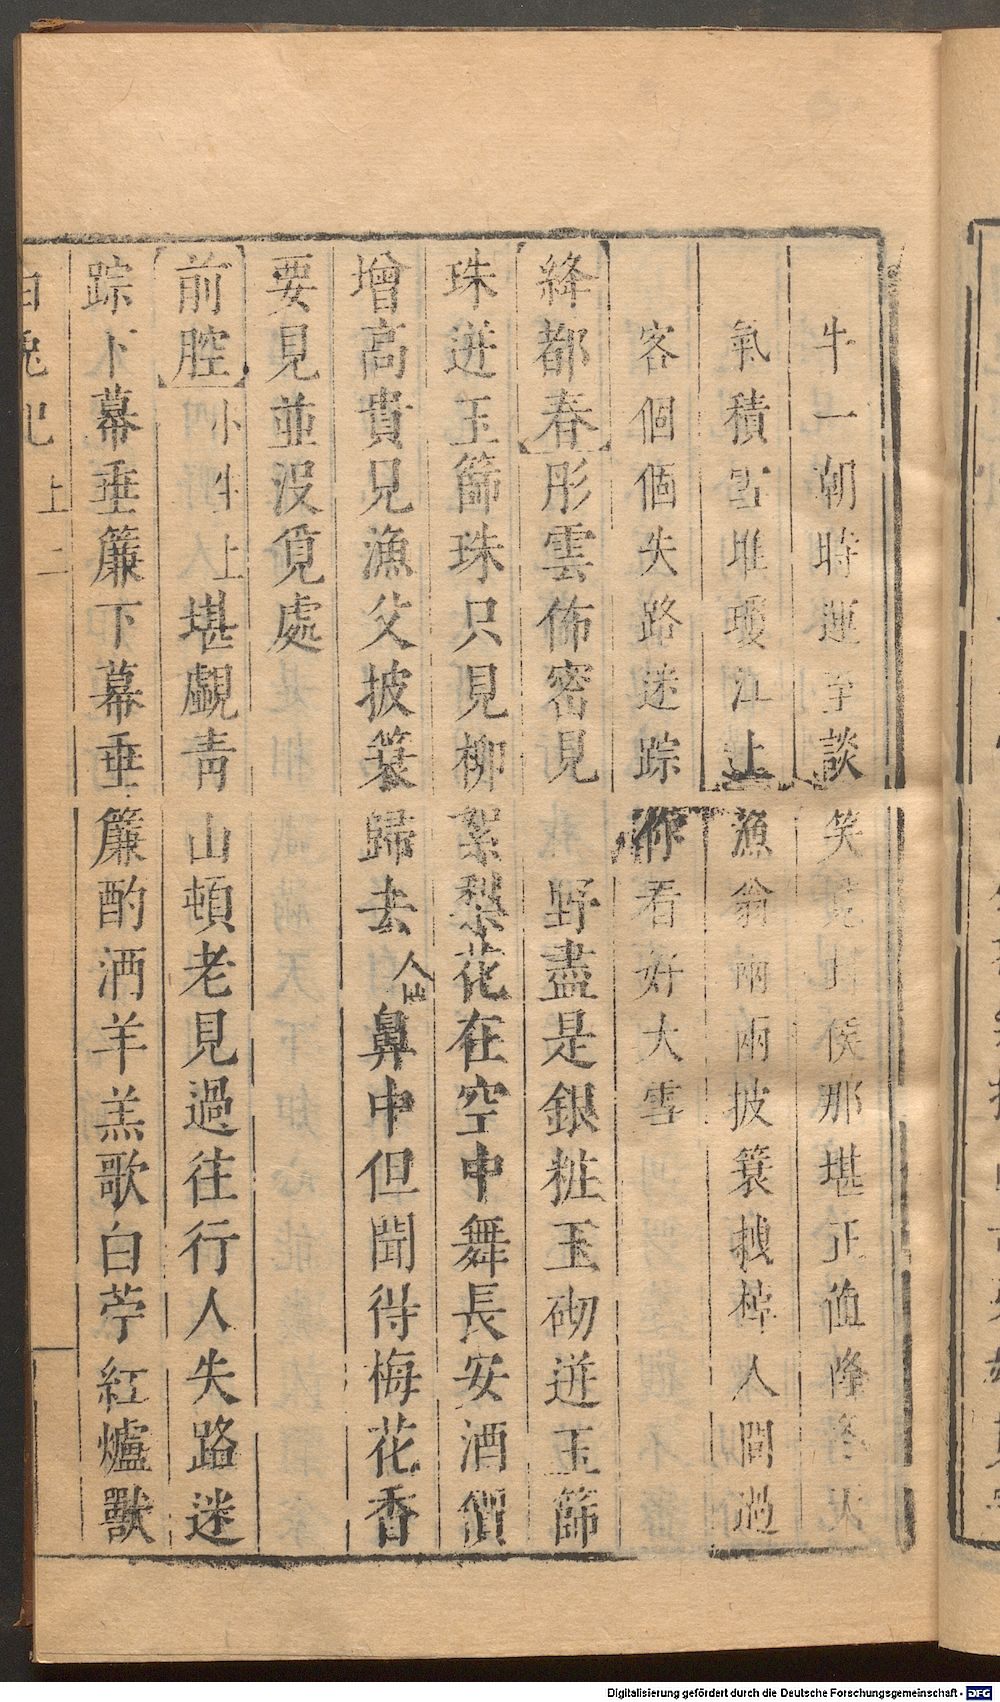 牛一朝時運至談笑覓封侯那堪正值降
氣積雪堆瓊江上漁翁兩兩披簑拽棹人間過
客個個失路迷踪你看好大雪
絳都春彤雲佈密見野盡是銀粧玉砌迸玉篩
珠迸玉篩珠只見柳絮梨花在空中舞長安酒價
增高貴見漁父披簑歸去仙人鼻中但聞得梅花香
要見並没覓處
前腔小生上堪覷青山頓老見過往行人失路迷
踪下幕垂簾下幕垂簾酌酒羊羔歌白苧紅爐獸
白兔記 上 二
Digitalisierung gefördert durch die Deutsche Forschungsgemeinschaft - DFG